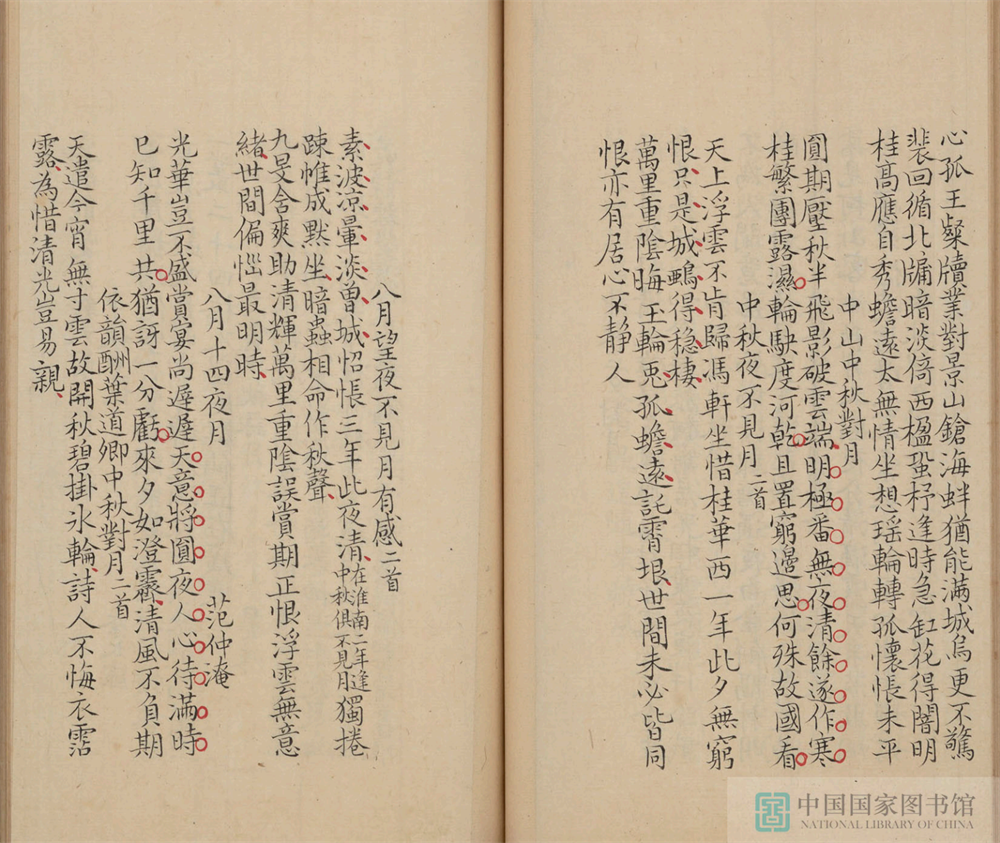 心孤王粲牘業對景山鎗海蚌猶能滿城烏更不驚
裴回循北牖暗淡倚西楹蛩杼逢時急缸花得闇明
桂髙應自秀蟾遠太無情坐想瑶輪轉孤懷悵未平
中山中秋對月
圓期壓秋半飛影破雲端明極番無夜清餘遂作寒
桂繁團露濕輪駃度河乾且置窮邊思何殊故國看
中秋夜不見月二首
天上浮雲不肯歸馮軒坐惜桂華西一年此夕無窮
恨只是城鵶得穏棲
萬里重陰晦玉輪兎孤蟾遠託霄垠世間未必皆同
恨亦有居心不静人
八月望夜不見月有感二首
素波凉暈淡曽城怊悵三年此夜清在淮南二年逢中秋俱不見月獨捲
踈帷成默坐暗蟲相命作秋聲
九旻含爽助清輝萬里重陰誤賞期正恨浮雲無意
緒世間偏惱最明時
八月十四夜月 范仲淹
光華豈不盛賞宴尚遲遲天意將圓夜人心待滿時
已知千里共猶訝一分虧來夕如澄霽清風不負期
依韻酬葉道卿中秋對月二首
天遣今宵無寸雲故開秋碧掛氷輪詩人不悔衣霑
露為惜清光豈易親
中国国家图书馆
NATIONAL LIBRARY OF CHINA